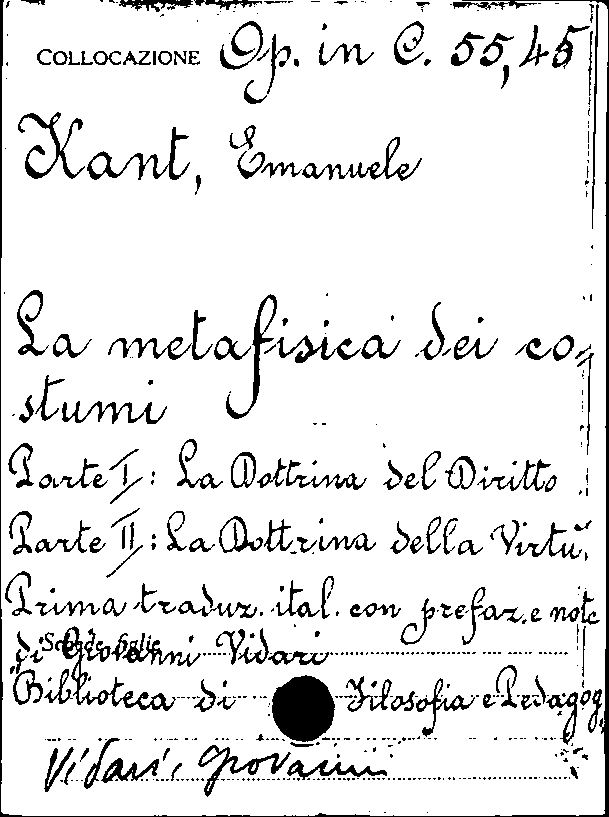 COLLOCAZIONE Op. in C. 55,45
Kant, Emanuele
La metafisica dei co=
stumi
Parte I: La Dottrina del Diritto
Parte II: La Dottrina della Virtù.
Prima traduz. ital. con prefaz. e note
di Giovanni Vidari
Schede figlie
"Biblioteca di Filosofia e Pedagog."
Vidari, Giovanni